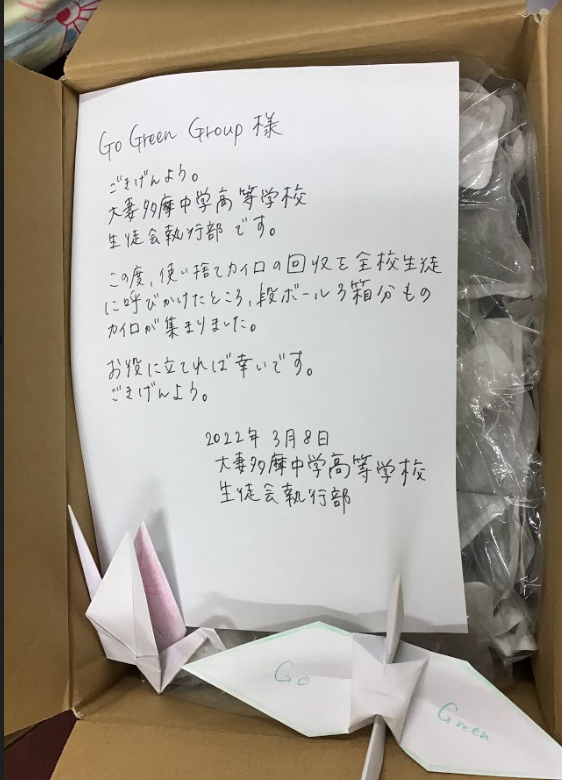 Go Green Group 様
ごきげんよう。
大妻多摩中学高等学校
生徒会執行部です。
この度、使い捨てカイロの回収を全校生徒
に呼びかけたところ、段ボール3箱分もの
カイロが集まりました。
お役に立てれば幸いです。
ごきげんよう。
2022年3月8日
大妻多摩中学高等学校
生徒会執行部
Go
Green